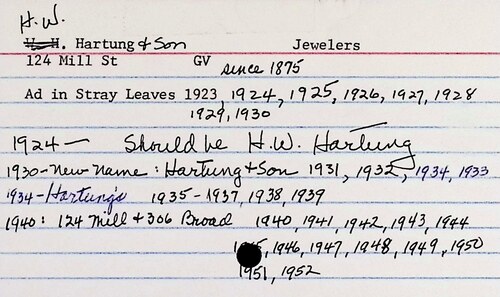 H.W.
H. Hartung & Son Jewelers
124 Mill St GV since 1875
Ad in Stray Leaves 1923, 1924, 1925, 1926, 1927, 1928
1929, 1930
1924 — Should be H.W. Hartung
1930-New Name: Hartung & Son 1931, 1932, 1934, 1933
1934-Hartung's 1935-1937, 1938, 1939
1940: 124 Mill & 306 Broad 1940, 1941, 1942, 1943, 1944
1945, 1946, 1947, 1948, 1949, 1950
1951, 1952